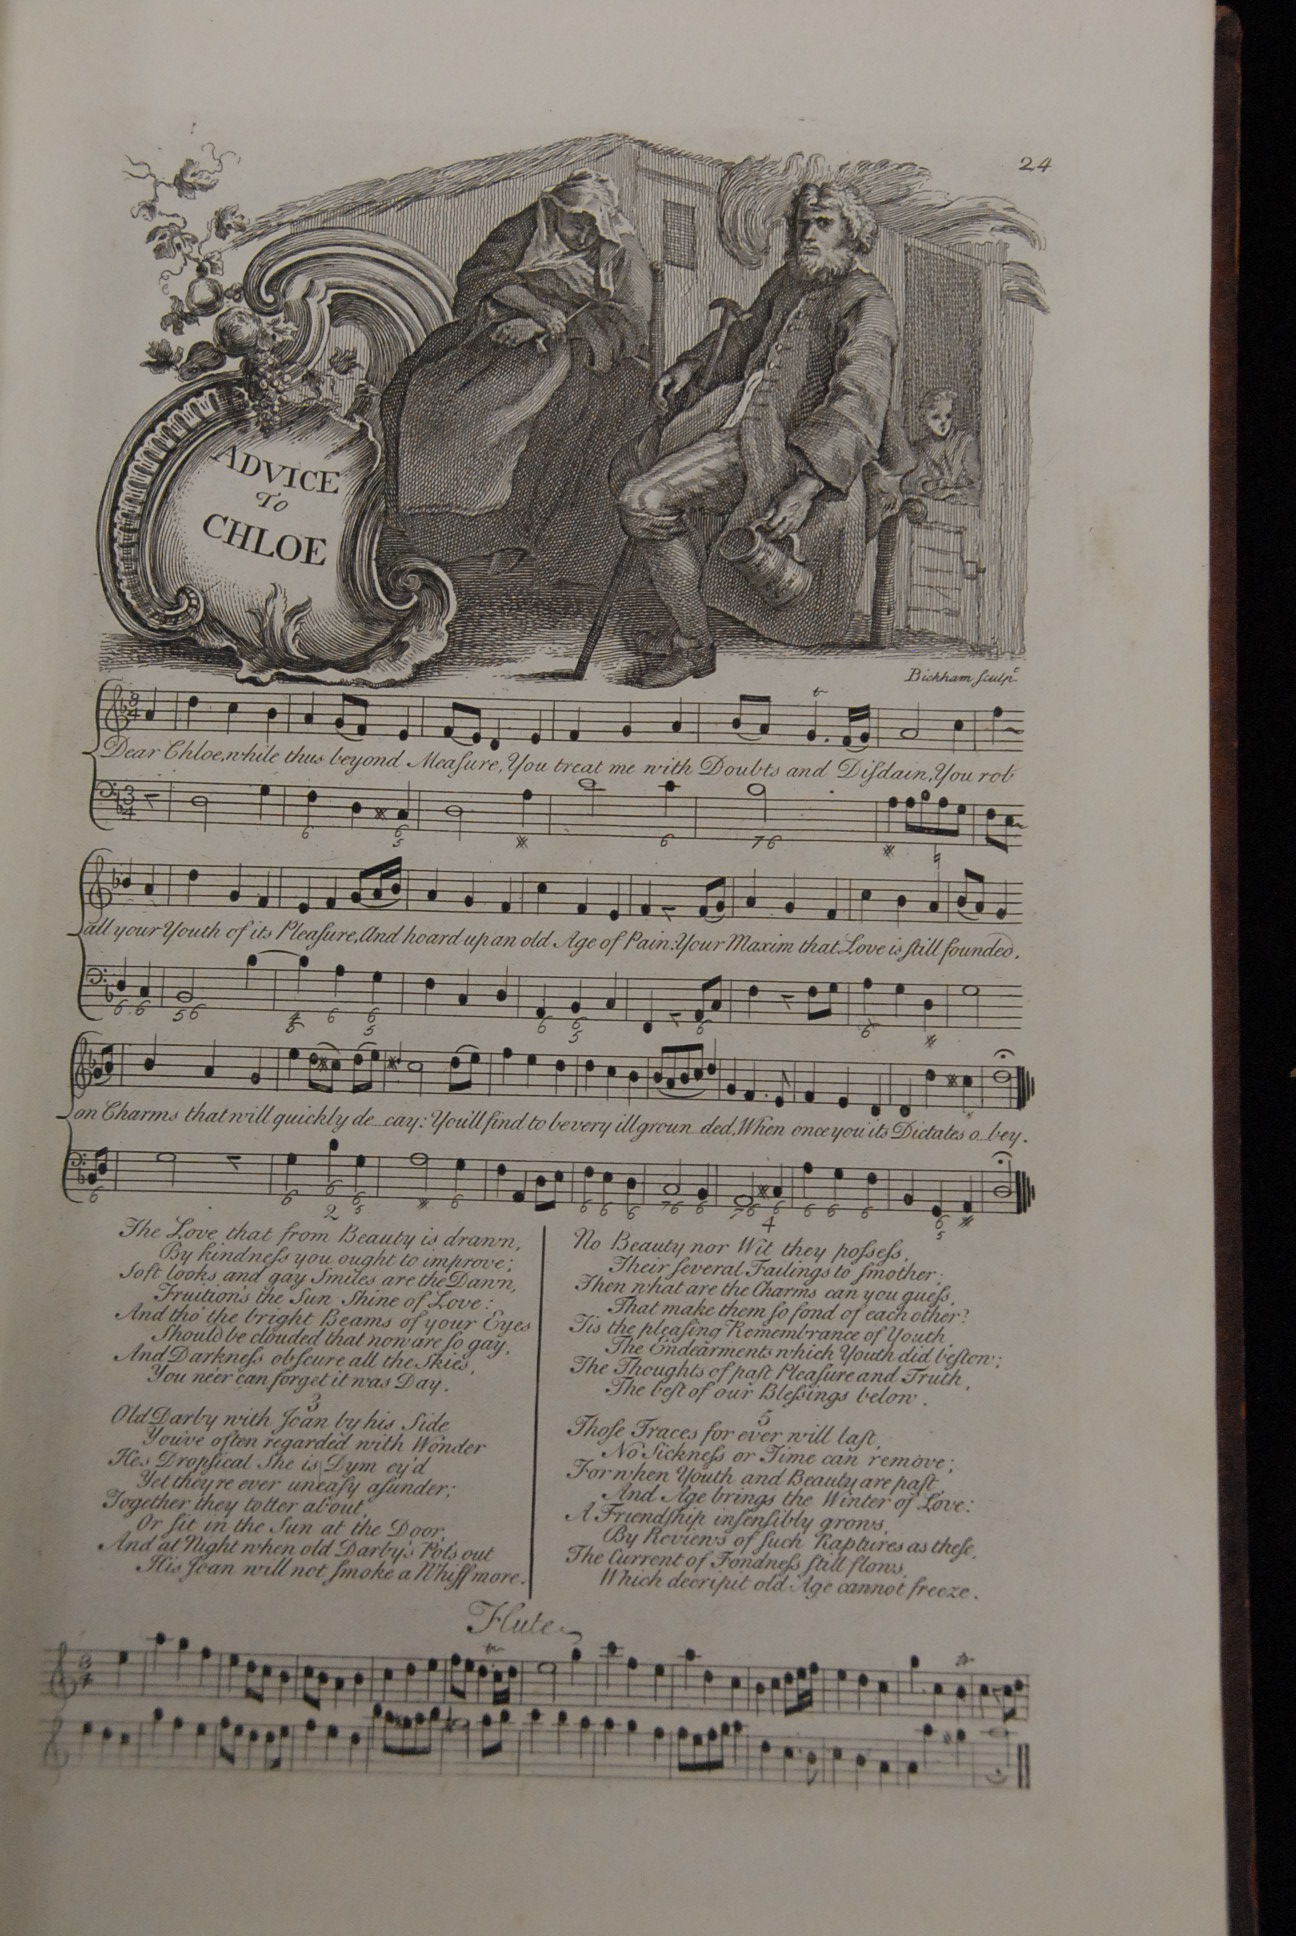 24
ADVICE
To
CHLOE
Bickham ſculpt.
Dear Chloe, while thus beyond Meaſure, You treat me with Doubts and Diſdain, You rob
all your Youth of its Pleaſure, And hoard up an old Age of Pain: Your Maxim that Love is ſtill founded,
on Charms that will quickly de..cay: You'll find to be very ill groun..ded, When once you its Dictates o..bey.
The Love that from Beauty is drawn,
By kindneſs you ought to improve;
Soft looks and gay Smiles are the Dawn,
Fruition's the Sun-Shine of Love:
And tho' the bright Beams of your Eyes
Should be clouded that now are ſo gay,
And Darkneſs obſcure all the Skies,
You ne'er can forget it was Day.
3
Old Darby with Joan by his Side
You've often regarded with Wonder
He's Dropſical She is Dym ey'd
Yet they're ever uneaſy aſunder;
Together they totter about,
Or ſit in the Sun at the Door,
And at Night when old Darby's Pot's out
His Joan will not ſmoke a Whiff more.
No Beauty nor Wit they poſseſs,
Their ſeveral Failings to ſmother;
Then what are the Charms can you gueſs,
That make them ſo fond of each other?
'Tis the pleaſing Remembrance of Youth
The Endearments which Youth did beſtow;
The Thoughts of paſt Pleaſure and Truth,
The beſt of our Bleſsings below.
5
Thoſe Traces for ever will laſt,
No Sickneſs or Time can remove;
For when Youth and Beauty are paſt,
And Age brings the Winter of Love:
A Friendſhip inſenſibly grows,
By Reviews of ſuch Raptures as theſe,
The Current of Fondneſs ſtill flows,
Which decripit old Age cannot freeze.
Flute